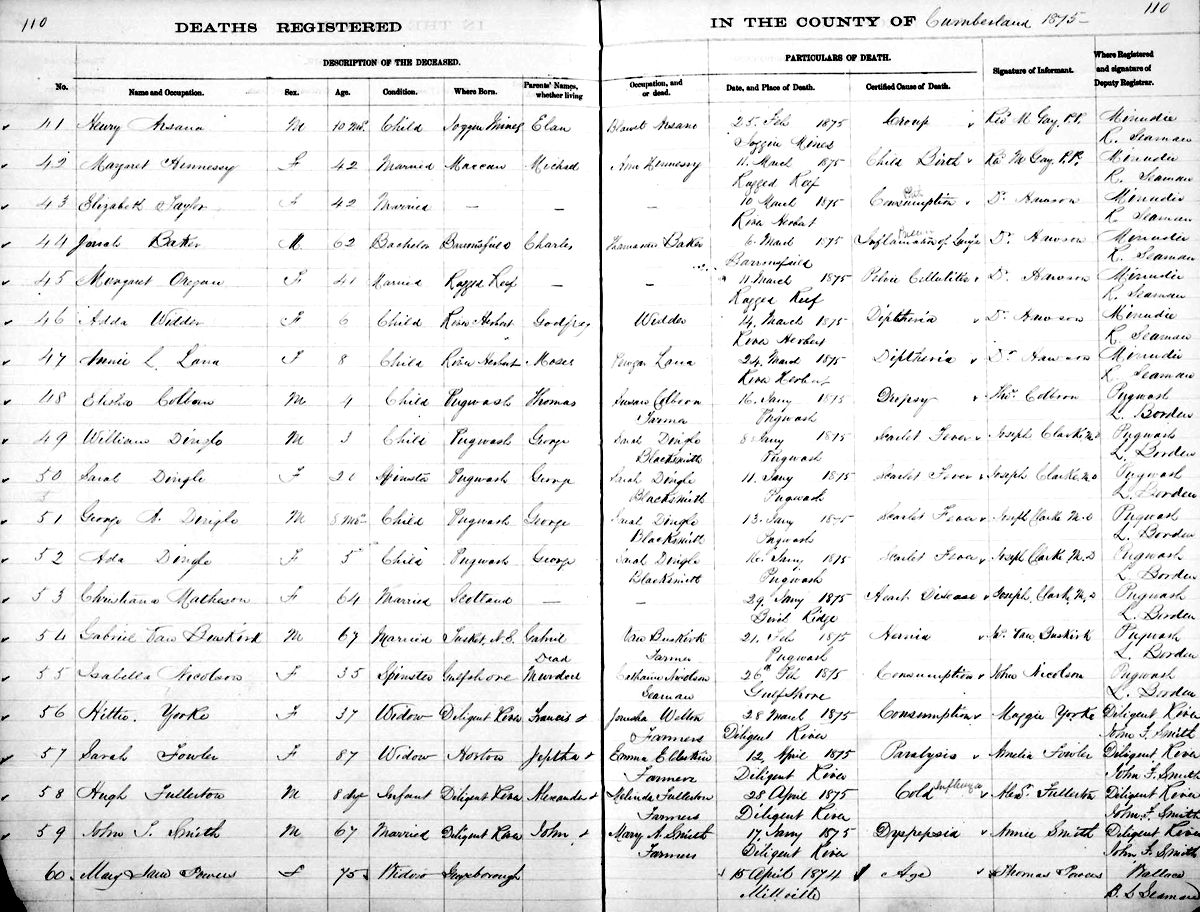 110
DEATHS REGISTERED
IN THE COUNTY OF Cumberland 1875
110
DESCRIPTION OF THE DECEASED.
PARTICULARS OF DEATH.
No. Name and Occupation. Sex. Age. Condition. Where Born. Parents' Names, whether living Occupation, and or dead. Date, and Place of Death. Certified Cause of Death. Signature of Informant. Where Registered and signature of Deputy Registrar.
41 Henry Arsana M 10 Mos. Child Joggin Mines Elan Arsano 25 Feb 1875 Croup Revd M Gay, P.P. Minudie
Joggin Mines R. Seaman
42 Margaret Hennessy F 42 Married Maccan Michael Ann Hennessy 11 March 1875 Child Birth Rev M Gay, P.P. Minudie
Ragged Reef R. Seaman
43 Elizabeth Taylor F 42 Married — — — 10 March 1875 Consumption Dr Hewson Minudie
River Herbert R. Seaman
44 Josiah Baker M 62 Bachelor Barronsfield Charles Baker 6 March 1875 Inflamation of Lungs Dr Hewson Minudie
Barronsfield R. Seaman
45 Margaret Oregan F 41 Married Ragged Reef — — 11 March 1875 Pelvic Cellulitis Dr Hewson Minudie
Ragged Reef R. Seaman
46 Adda Wedder F 6 Child River Herbert Godfrey Wedder 14 March 1875 Diptheria Dr Hewson Minudie
River Herbert R. Seaman
47 Annie L. Lana F 8 Child River Herbert Moses Lana 24 March 1875 Diptheria Dr Hewson Minudie
River Herbert R. Seaman
48 Elisha Colborn M 4 Child Pugwash Thomas Susan Colborn 16 Jany 1875 Dropsy Thos. Colborn Pugwash
Farmer Pugwash L. Borden
49 William Dingle M 3 Child Pugwash George Sarah Dingle 8 Jany 1875 Scarlet Fever Joseph Clarke M.D Pugwash
Blacksmith Pugwash L. Borden
50 Sarah Dingle F Spinster Pugwash George Sarah Dingle 11 Jany 1875 Scarlet Fever Joseph Clarke M.D Pugwash
Blacksmith Pugwash L. Borden
51 George A. Dingle M 8 Mos Child Pugwash George Sarah Dingle 13 Jany 1875 Scarlet Fever Joseph Clarke M.D Pugwash
Blacksmith Pugwash L. Borden
52 Ada Dingle F 5 Child Pugwash George Sarah Dingle 16 Jany 1875 Scarlet Fever Joseph Clarke M.D Pugwash
Blacksmith Pugwash L. Borden
53 Christiana Matheson F 64 Married Scotland — — 29 Jany 1875 Heart Disease Joseph Clark, M.D Pugwash
Ridge L. Borden
54 Gabriel Van Buskirk M 67 Married Tusket, N.S. Gabriel Van Buskirk 21 Feb 1875 Hernia Wm Van Buskirk Pugwash
Dead Farmer Pugwash L. Borden
55 Isabella Nicolson F 35 Spinster Gulfshore Murdoch Catharine Nicolson 26th Feb 1875 Consumption John Nicolson Pugwash
Seaman Gulf Shore L. Borden
56 Hittie Yorke F 37 Widow Diligent River Francis & Jerusha Welton 28 March 1875 Consumption Maggie Yorke Diligent River
Farmers Diligent River John F. Smith
57 Sarah Fowler F 87 Widow Horton Jeptha & Emma Elderkin 12 April 1875 Paralysis Amelia Fowler Diligent River
Farmers Diligent River John F. Smith
58 Hugh Fullerton M 8 days Infant Diligent River Alexander & Melinda Fullerton 28 April 1875 Cold Influenza Alexr. Fullerton Diligent River
Farmers Diligent River John F. Smith
59 John S. Smith M 67 Married Diligent River John & Mary A. Smith 17 Jany 1875 Dyspepsia Annie Smith Diligent River
Farmers Diligent River John F. Smith
60 Mary Jane Powers F 75 Widow Guysborough 15 April 1874 Age Thomas Powers Wallace
Millville B. D Seaman